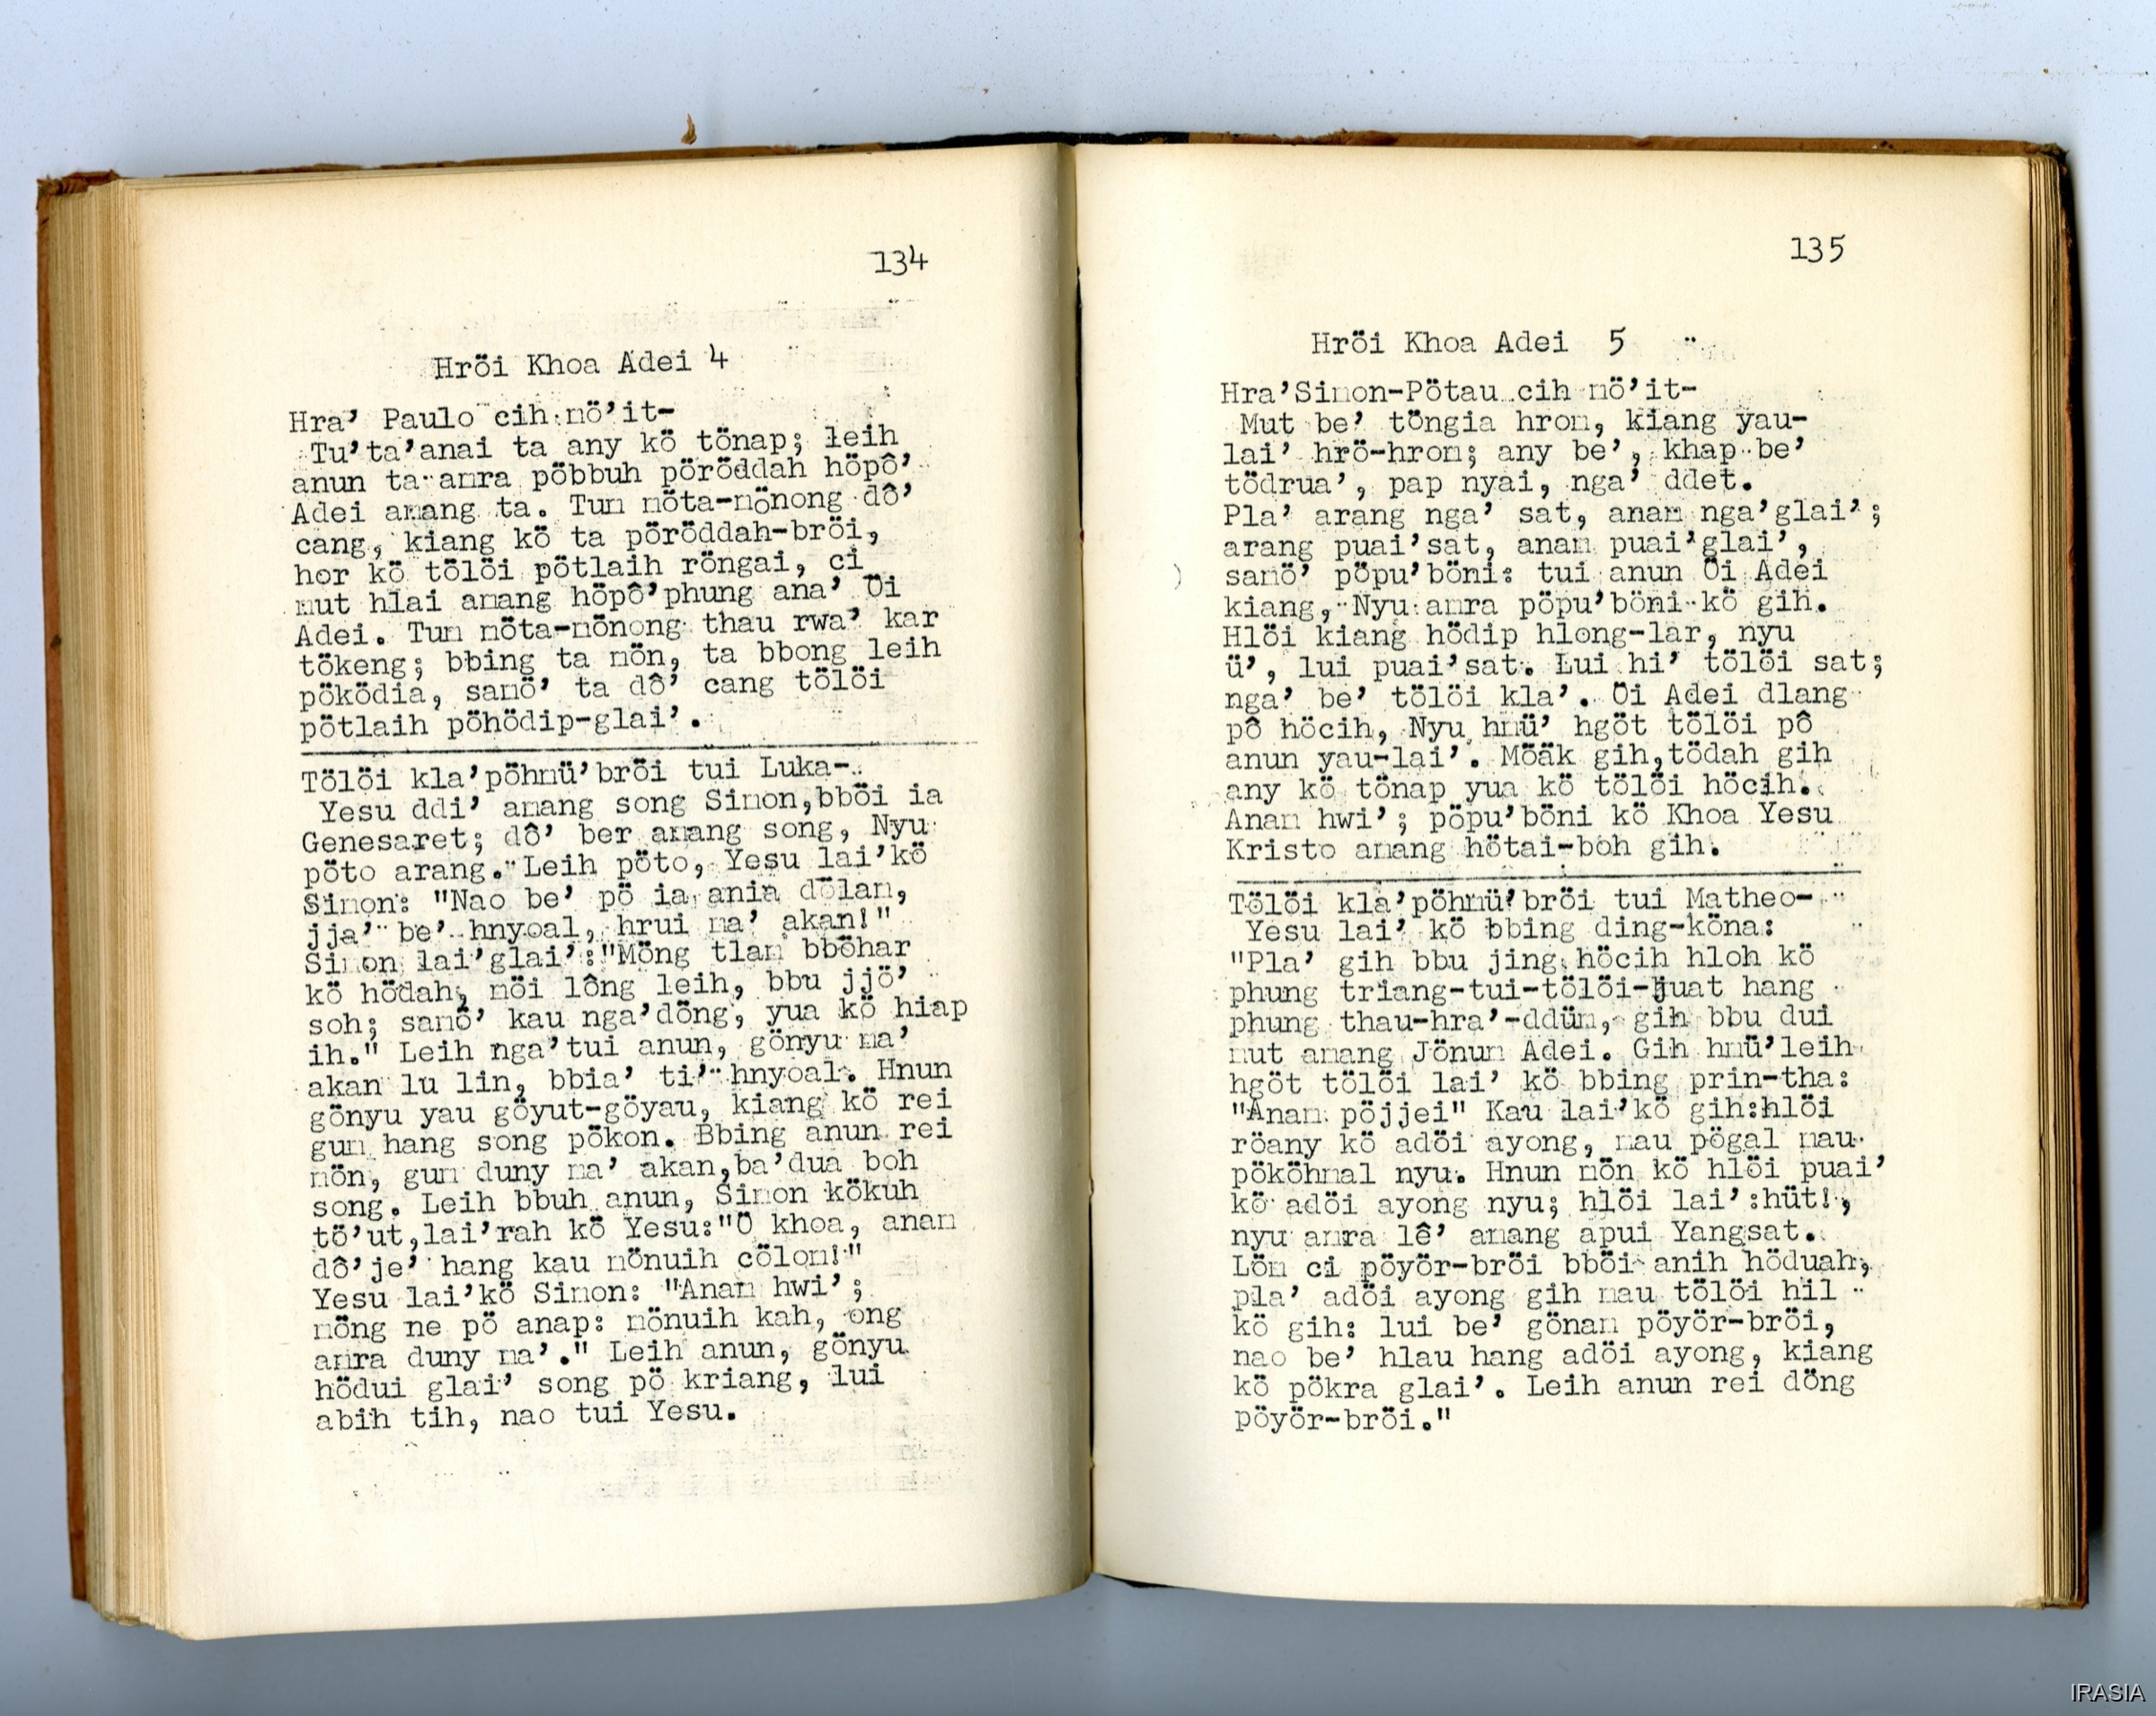 134
Hröi Khoa Adei 4
Hra' Paulo cih mö'it-
Tu'ta'anai ta any kö tönap; leih
anun ta amra pöbbuh pöröddah höpô'
Adei amang ta. Tum möta-mönong dô'
cang, kiang kö ta pöröddah-bröi,
hor kö tölöi pötlaih röngai, ci
mut hlai amang höpô'phung ana' Öi
Adei. Tum möta-mönong thau rwa' kar
tökeng; bbing ta mön, ta bbong leih
pöködia, samö' ta dô' cang tölöi
pötlaih pöhödip-glai'.
Tölöi kla'pöhmü'bröi tui Luka-
Yesu ddi' amang song Simon,bböi ia
Genesaret; dô' ber amang song, Nyu
pöto arang. Leih pöto, Yesu lai'kö
Simon: "Nao be' pö ia ania dölam,
jja' be' hnyoal, hrui ma' akan!"
Simon lai'glai':"Möng tlam bböhar
kö hödah, möi lông leih, bbu jjö'
soh; samô' kau nga'döng, yua kö hiap
ih." Leih nga'tui anun, gönyu ma'
akan lu lin, bbia' ti' hnyoal. Hnun
gönyu yau göyut-göyau, kiang kö rei
gum hang song pökon. Bbing anun rei
mön, gum duny ma' akan,ba'dua boh
song. Leih bbuh anun, Simon kökuh
tö'ut,lai'rah kö Yesu:"Ö khoa, anam
dô'je' hang kau mönuih cölom!"
Yesu lai'kö Simon: "Anam hwi';
möng ne pö anap: mönuih kah, ong
amra duny ma'." Leih anun, gönyu
hödui glai' song pö kriang, lui
abih tih, nao tui Yesu.
135
Hröi Khoa Adei 5
Hra'Simon-Pötau cih mö'it-
Mut be' töngia hrom, kiang yau-
lai' hrö-hrom; any be', khap be'
tödrua', pap nyai, nga' ddet.
Pla' arang nga' sat, anam nga'glai';
arang puai'sat, anam puai'glai',
samö' pöpu'böni: tui anun Öi Adei
kiang, Nyu amra pöpu'böni kö gih.
Hlöi kiang hödip hlong-lar, nyu
ü', lui puai'sat. Lui hi' tölöi sat;
nga' be' tölöi kla'. Öi Adei dlang
pô höcih, Nyu hmü' hgöt tölöi pô
anun yau-lai'. Möäk gih,tödah gih
any kö tönap yua kö tölöi höcih.
Anam hwi'; pöpu'böni kö Khoa Yesu
Kristo amang hötai-boh gih.
Tölöi kla'pöhmü'bröi tui Matheo-
Yesu lai' kö bbing ding-köna:
"Pla' gih bbu jing höcih hloh kö
phung triang-tui-tölöi-juat hang
phung thau-hra'-ddüm, gih bbu dui
mut amang Jönum Adei. Gih hmü'leih
hgöt tölöi lai' kö bbing prin-tha:
"Anam pöjjei" Kau lai'kö gih:hlöi
röany kö adöi ayong, mau pögal mau
pököhmal nyu. Hnun mön kö hlöi puai'
kö adöi ayong nyu; hlöi lai':hüt!,
nyu amra lê' amang apui Yangsat.
Löm ci pöyör-bröi bböi anih höduah,
pla' adöi ayong gih mau tölöi hil
kö gih: lui be' gönam pöyör-bröi,
nao be' hlau hang adöi ayong, kiang
kö pökra glai'. Leih anun rei döng
pöyör-bröi."
IRASIA